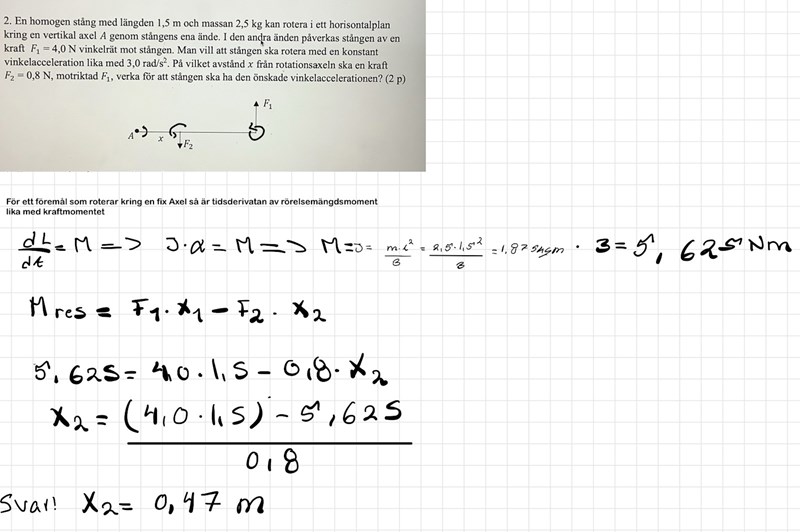 2. En homogen stång med längden 1,5 m och massan 2,5 kg kan rotera i ett horisontalplan
kring en vertikal axel A genom stångens ena ände. I den andra änden påverkas stången av en
kraft F₁ = 4,0 N vinkelrät mot stången. Man vill att stången ska rotera med en konstant
vinkelacceleration lika med 3,0 rad/s². På vilket avstånd x från rotationsaxeln ska en kraft
F₂ = 0,8 N, motriktad F₁, verka för att stången ska ha den önskade vinkelaccelerationen? (2 p)
F₁
A x F₂
För ett föremål som roterar kring en fix Axel så är tidsderivatan av rörelsemängdsmoment
lika med kraftmomentet
dL/dt = M => J·α = M => M = J = m·l²/3 = 2,5·1,5²/3 = 1,875 kgm · 3 = 5,625 Nm
Mres = F1·x1 - F2·x2
5,625 = 4,0·1,5 - 0,8·x2
x2 = (4,0·1,5) - 5,625
0,8
Svar! x2 = 0,47 m